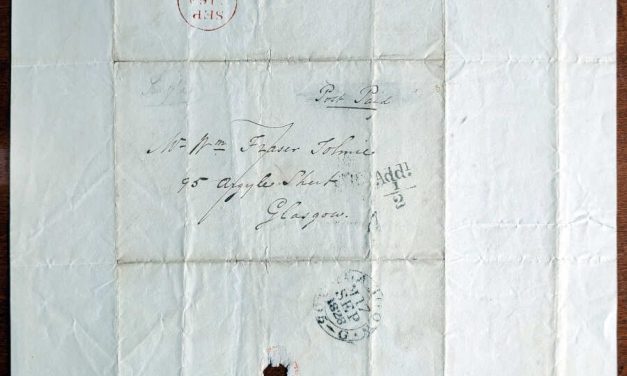 SEP
Post Paid
Mr Wm Fraser Tolmie
95 Argyle Street
Glasgow.
Addl
1/2
17
SEP
1828